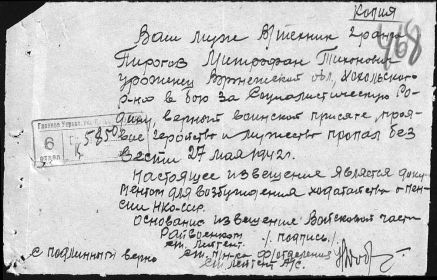 Копия
468
Ваш муж В/техник 2 ранга
Пирогов Митрофан Тихонович
уроженец Воронежской обл, Хохольского
р-на в бою за Социалистическую Ро-
дину, верный воинской присяге, проя-
вив геройство и мужество пропал без
вести 27 мая 1942г.
Настоящее извещение является доку-
ментом для возбуждения ходатайства о пен-
сии НКО-ССР.
основание извещение Войсковой части
Райвоенком /. подпись /.
с подлинным верно
6
отдел